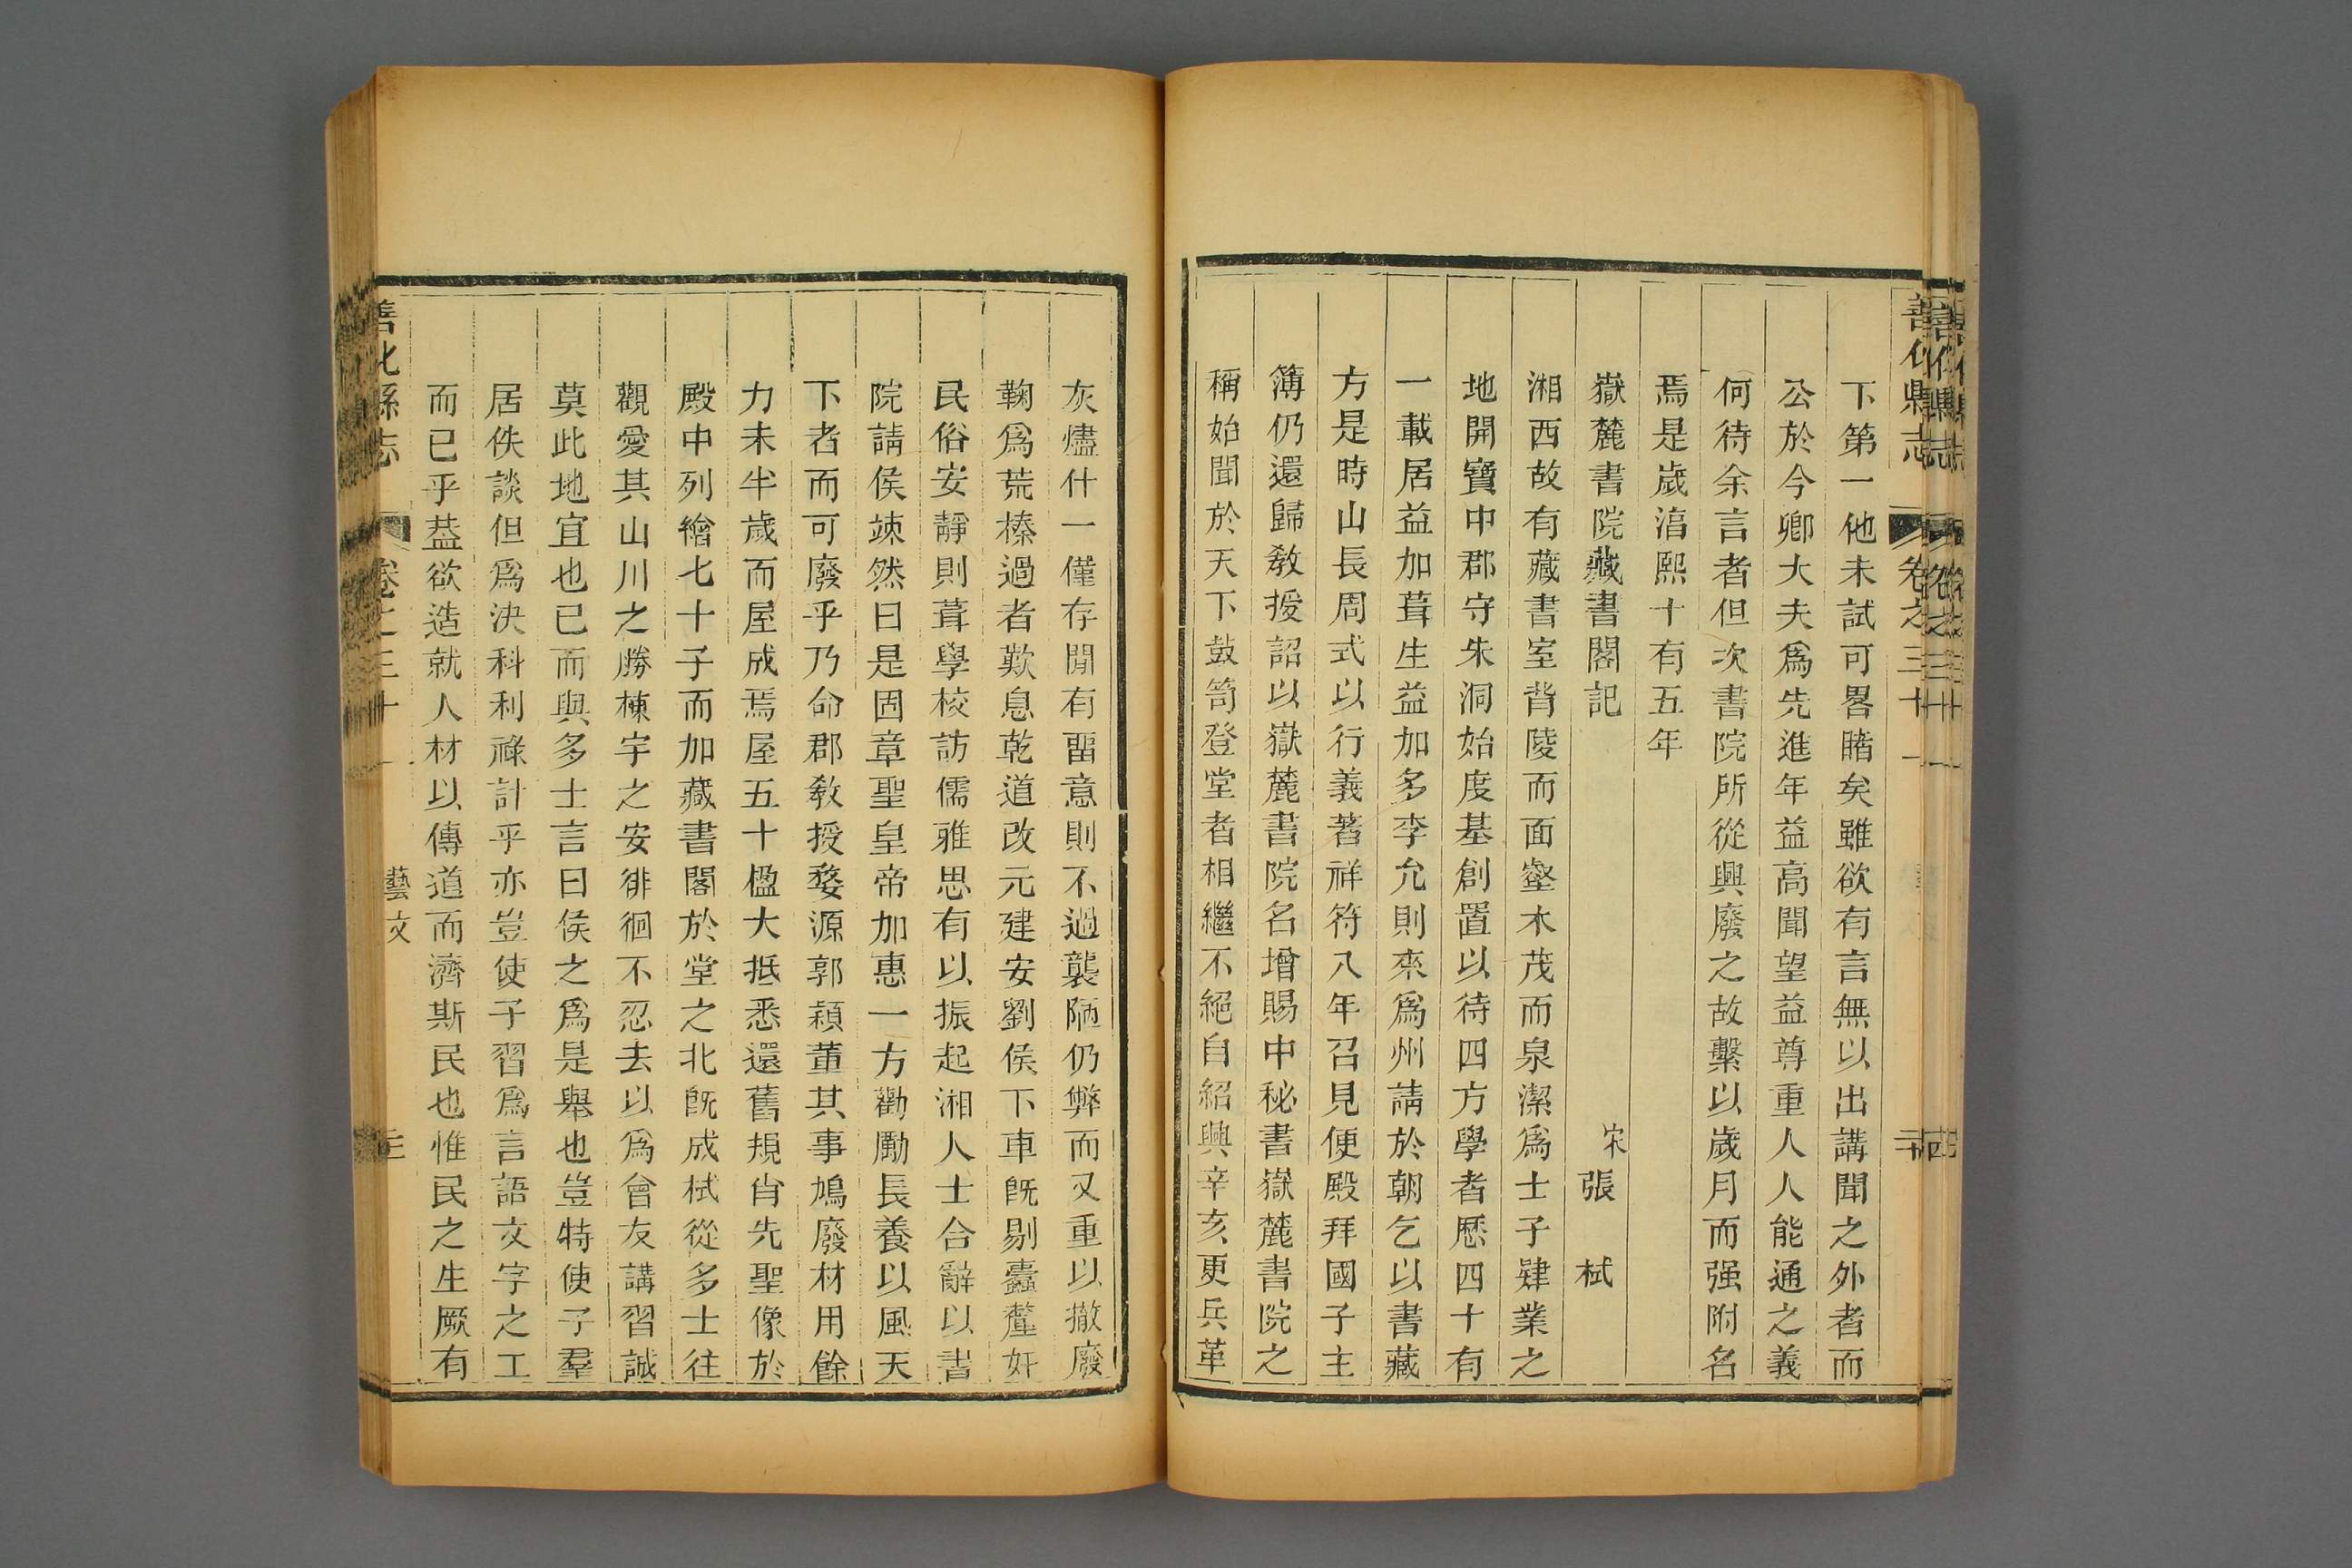 下第一他未試可畧睹矣雖欲有言無以出講聞之外者而
公於今卿大夫爲先進年益高聞望益尊重人人能通之義
何待余言者但次書院所從興廢之故繫以歲月而强附名
焉是歲淳熙十有五年
嶽麓書院藏書閣記
宋張栻
湘西故有藏書室背陵而面壑木茂而泉潔爲士子肄業之
地開寶中郡守朱洞始度基創置以待四方學者歷四十有
一載居益加葺生益加多李允則來爲州請於朝乞以書藏
方是時山長周式以行義著祥符八年召見便殿拜國子主
簿仍還歸敎授詔以嶽麓書院名增賜中秘書嶽麓書院之
稱始聞於天下鼓笥登堂者相繼不絕自紹興辛亥更兵革
灰燼什一僅存間有畱意則不過襲陋仍弊而又重以撤廢
鞠爲荒榛過者歎息乾道改元建安劉侯下車旣剔蠹釐奸
民俗安靜則葺學校訪儒雅思有以振起湘人士合辭以書
院請侯竦然曰是固章聖皇帝加惠一方勸勵長養以風天
下者而可廢乎乃命郡敎授婺源郭穎董其事鳩廢材用餘
力未半歲而屋成焉屋五十楹大抵悉還舊規肖先聖像於
殿中列繪七十子而加藏書閣於堂之北旣成栻從多士往
觀愛其山川之勝棟宇之安徘徊不忍去以爲會友講習誠
莫此地宜也已而與多士言曰侯之爲是舉也豈特使子羣
居佚談但爲決科利祿計乎亦豈使子習爲言語文字之工
而已乎葢欲造就人材以傳道而濟斯民也惟民之生厥有
善化縣志
卷之三十一
藝文